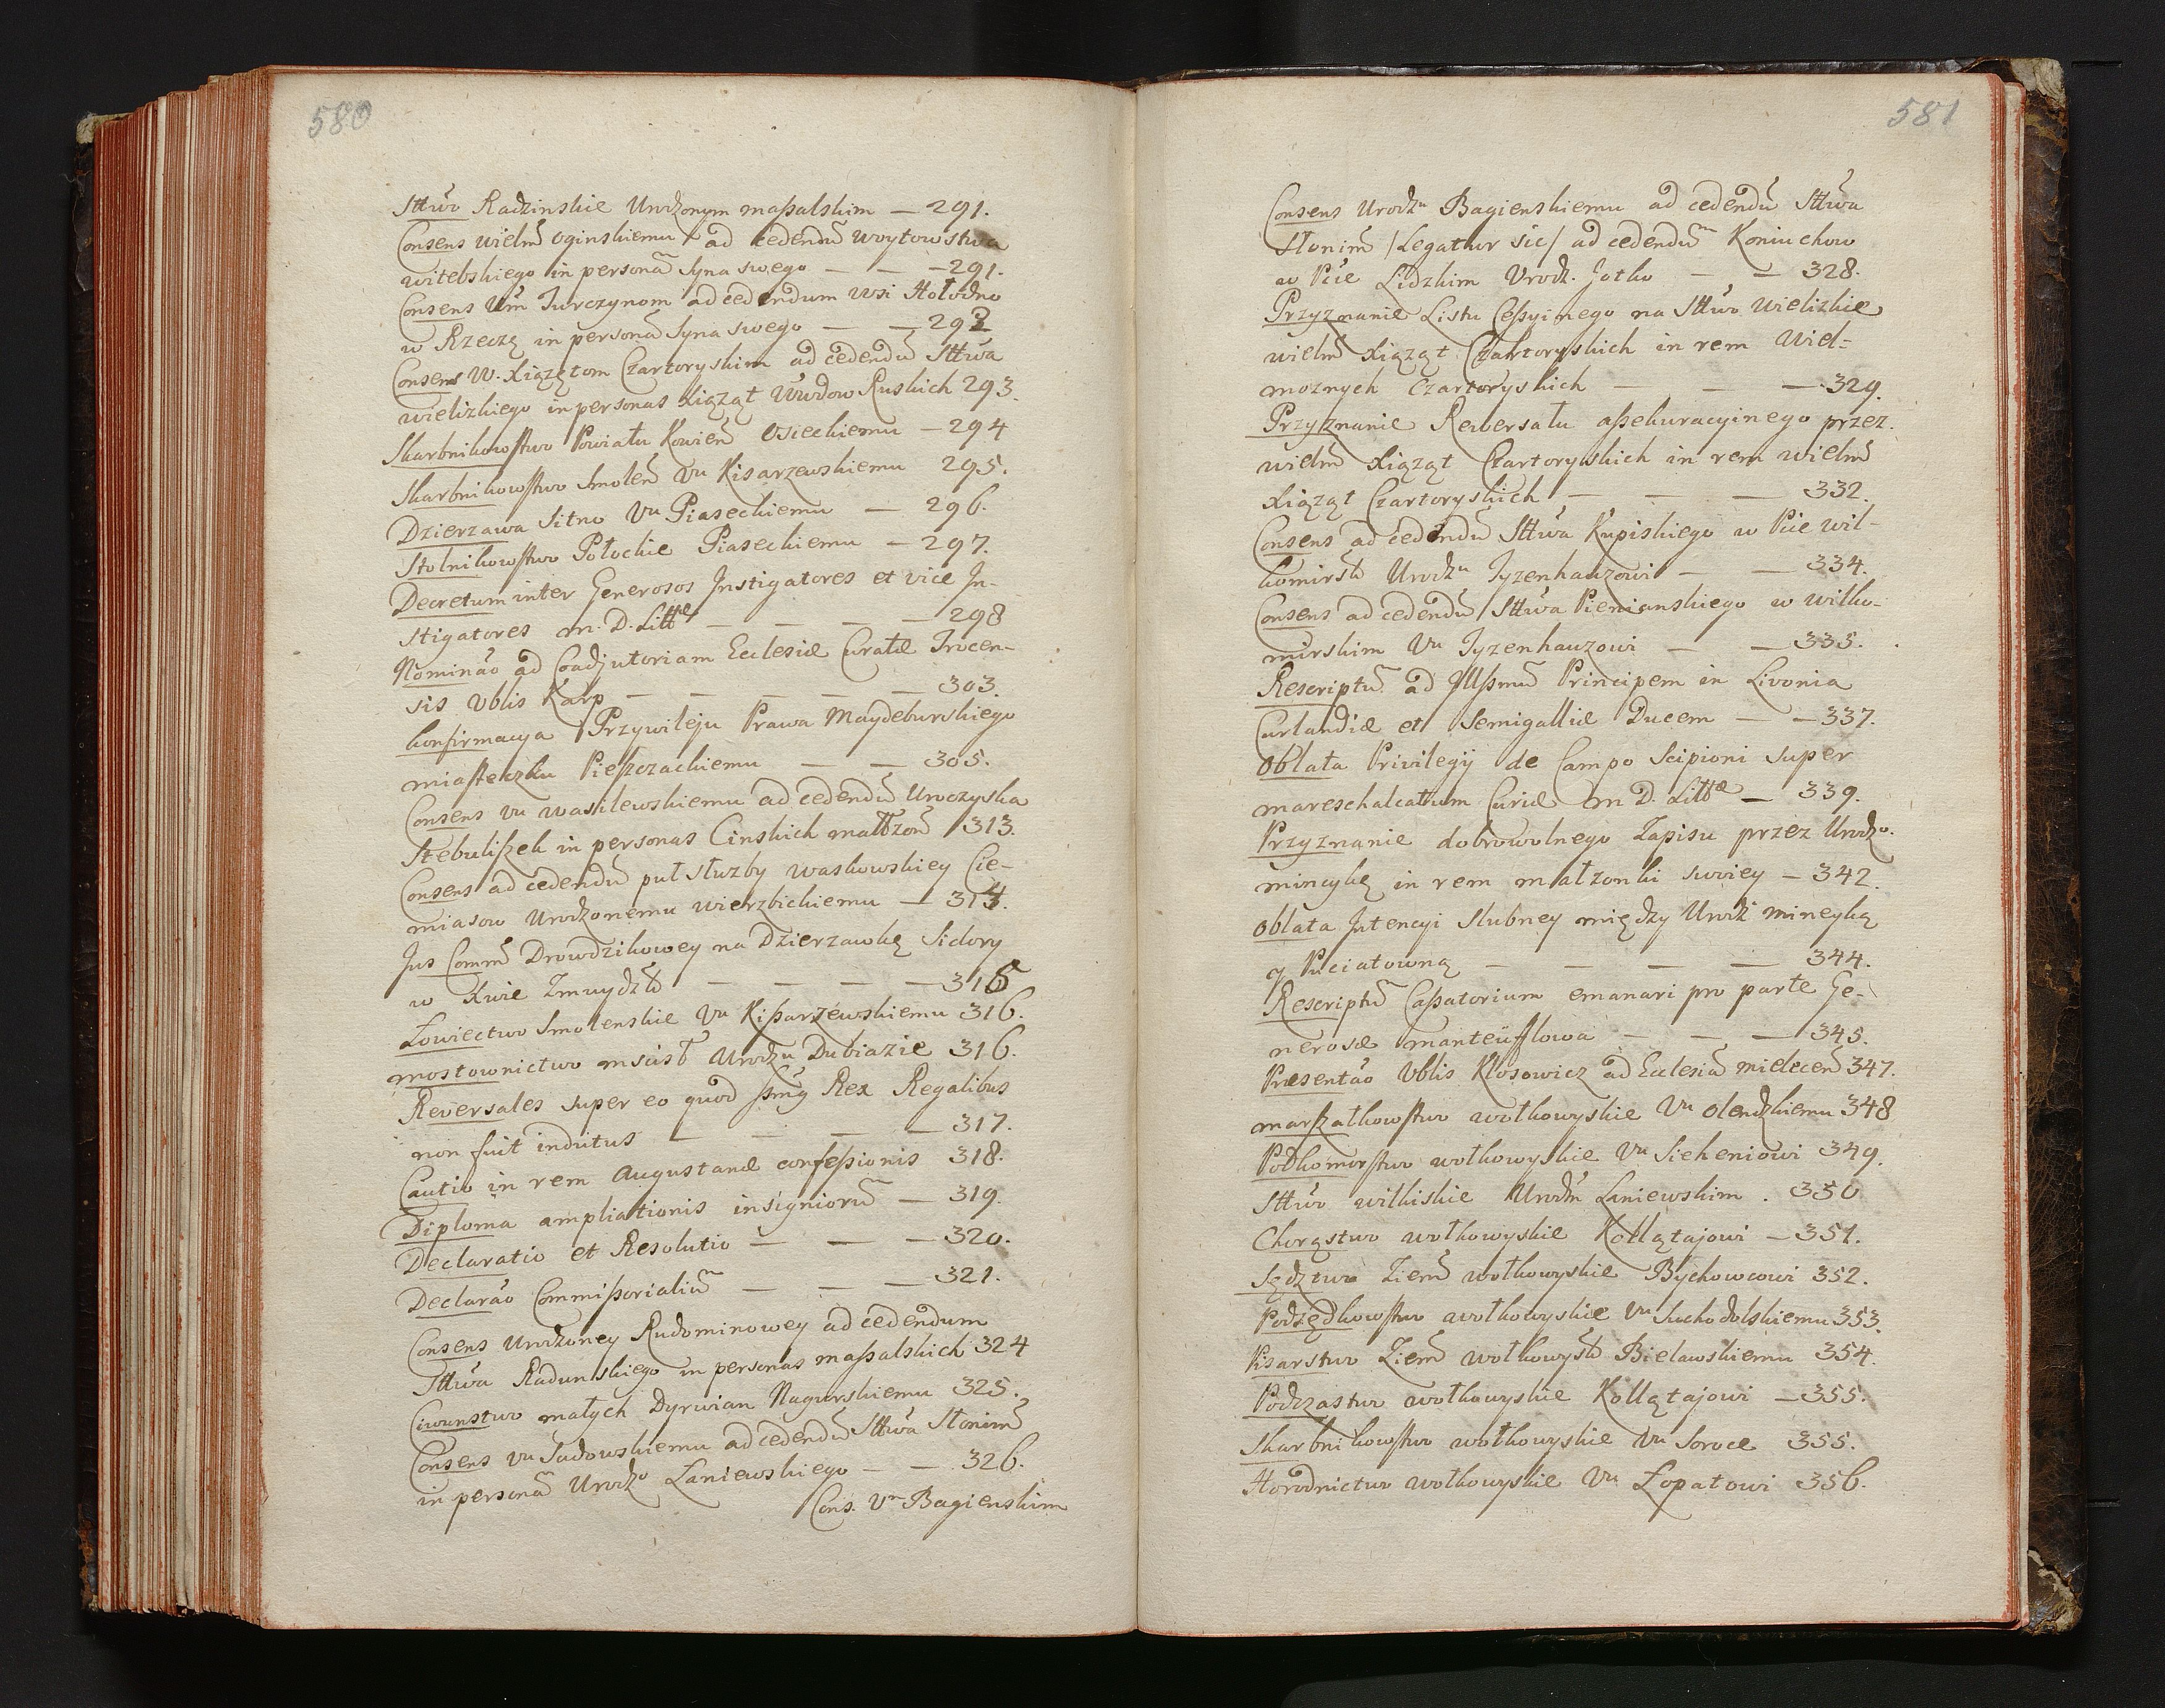 580
Sttwo Radzinskie Urodzonym maßalskim — 291.
Consens wielm Oginskiemu ad cedendu woytowstwa
witebskiego in persona syna swego — — — 291.
Consens Um Jurczynom ad cedendum wsi Hołodno
w Rzeczę in persona syna swego — — 292
Consens W. Xiążętom Czartoryskim ad cedendu Sttwa
wielizkiego in personas Xiążąt Wwdow Ruskich 293.
Skarbnikowstwo Powiatu Kowień Osieckiemu — 294
Skarbnikowstwo Smoleń Vu Kisarzewskiemu 295.
Dzierzawa Sitno Vu Piaseckiemu — 296.
Stolnikowstwo Połockie Piaseckiemu — 297.
Decretum inter Generosos Instigatores et vice In-
stigatores M. D. Litt — — — — 298
Nominao ad Coadjutoriam Ecclesiæ Curatæ Trocen-
sis Vblis Karp — — — — — 303.
konfirmacya Przywileju Prawa Maydeburskiego
miasteczku Pieszczackiemu — — 305.
Consens Vu Wasilewskiemu ad cedendu Uroczyska
Stebuliszek in personas Cinskich małżon 313.
Consens ad cedendu puł służby Waskowskiey Cie-
miasow Urodzonemu Wierzbickiemu — 314.
Jus Comm Drowdzikowey na Dzierzawkę Sidory
w Xwie Zmuydzk — — — — 315
Łowiectwo Smolenskie Vu Kißarzewskiemu 316.
mostownictwo mscisł Urodzu Dubiazie 316.
Reversales super eo quod ßmg Rex Regalibus
non fuit indutus — — — — 317.
Cautio in rem Augustanæ confeßionis 318.
Diploma ampliationis insigniorũ — 319.
Declaratio et Resolutio — — — 320.
Declarao Commißorialiũ — — — 321.
Consens Urodzoney Rudominowey ad cedendum
Sttwa Radunskiego in personas maßalskich 324
Ciwunstwo małych Dyrwian Nagurskiemu 325.
Consens Vu Sadowskiemu ad cedendu Sttwa Słonim
in persona Urodzo Laniewskiego — — 326.
Cons. Vm Bagienskim
581
Consens Urodzu Bagienskiemu ad cedendu Sttwa
Słonim /Legatur sic/ ad cedendu Koniuchow
w Pcie Lidzkim Urodz. Jotko — — 328.
Przyznanie Listu Ceßyinego na Sttwo Wielizkie
wielm Xiążąt Czartoryskich in rem Wiel-
moznych Czartoryskich — — — 329.
Przyznanie Rewersału aßekuracyinego przez
wielm Xiążąt Czartoryskich in rem wielm
Xiążąt Czartoryskich — — — 332.
Consens ad cedendu Sttwa Kupiskiego w Pcie wił-
komirsk Urodzu Tyzenhauzowi — — 334.
Consens ad cedendu Sttwa Pienianskiego w wiłko-
mirskim Vu Tyzenhauzowi — — 335.
Rescriptũ ad Illßmũ Principem in Livonia
Curlandiæ et Semigalliæ Ducem — — 337.
Oblata Privilegij de Campo Scipioni super
mareschalcatum Curiæ M D. Littæ — 339.
Przyznanie dobrowolnego Zapisu przez Urodzo.
mineykę in rem małzonki swoiey — 342.
Oblata Intencyi Slubney między Urodz mineyką
y Puciatowną — — — — 344.
Rescriptũ Caßatorium emanari pro parte Ge-
nerosæ Manteüflowa — — — 345.
Præsentao Vblis Kłosowicz ad Ecclesiã mieleceñ 347.
marszałkowstwo wołkowyskie Vu Olendzkiemu 348
Podkomorstwo wołkowyskie Vu Sieheniowi 349.
Sttwo wilkiskie Urodzm Laniewskim . 350
Chorąstwo wołkowyskie Kołłątajowi — 351.
Sędztwo Ziem wołkowyskie Bychowcowi 352.
Podsędkowstwo wołkowyskie Vu Suchodolskiemu 353.
Pisarstwo Ziem wołkowysk Bielawskiemu 354.
Podczastwo wołkowyskie Kołłątajowi — 355.
Skarbnikowstwo wołkowyskie Vu Soroce 355.
Horodnictwo wołkowyskie Vu Łopatowi 356.